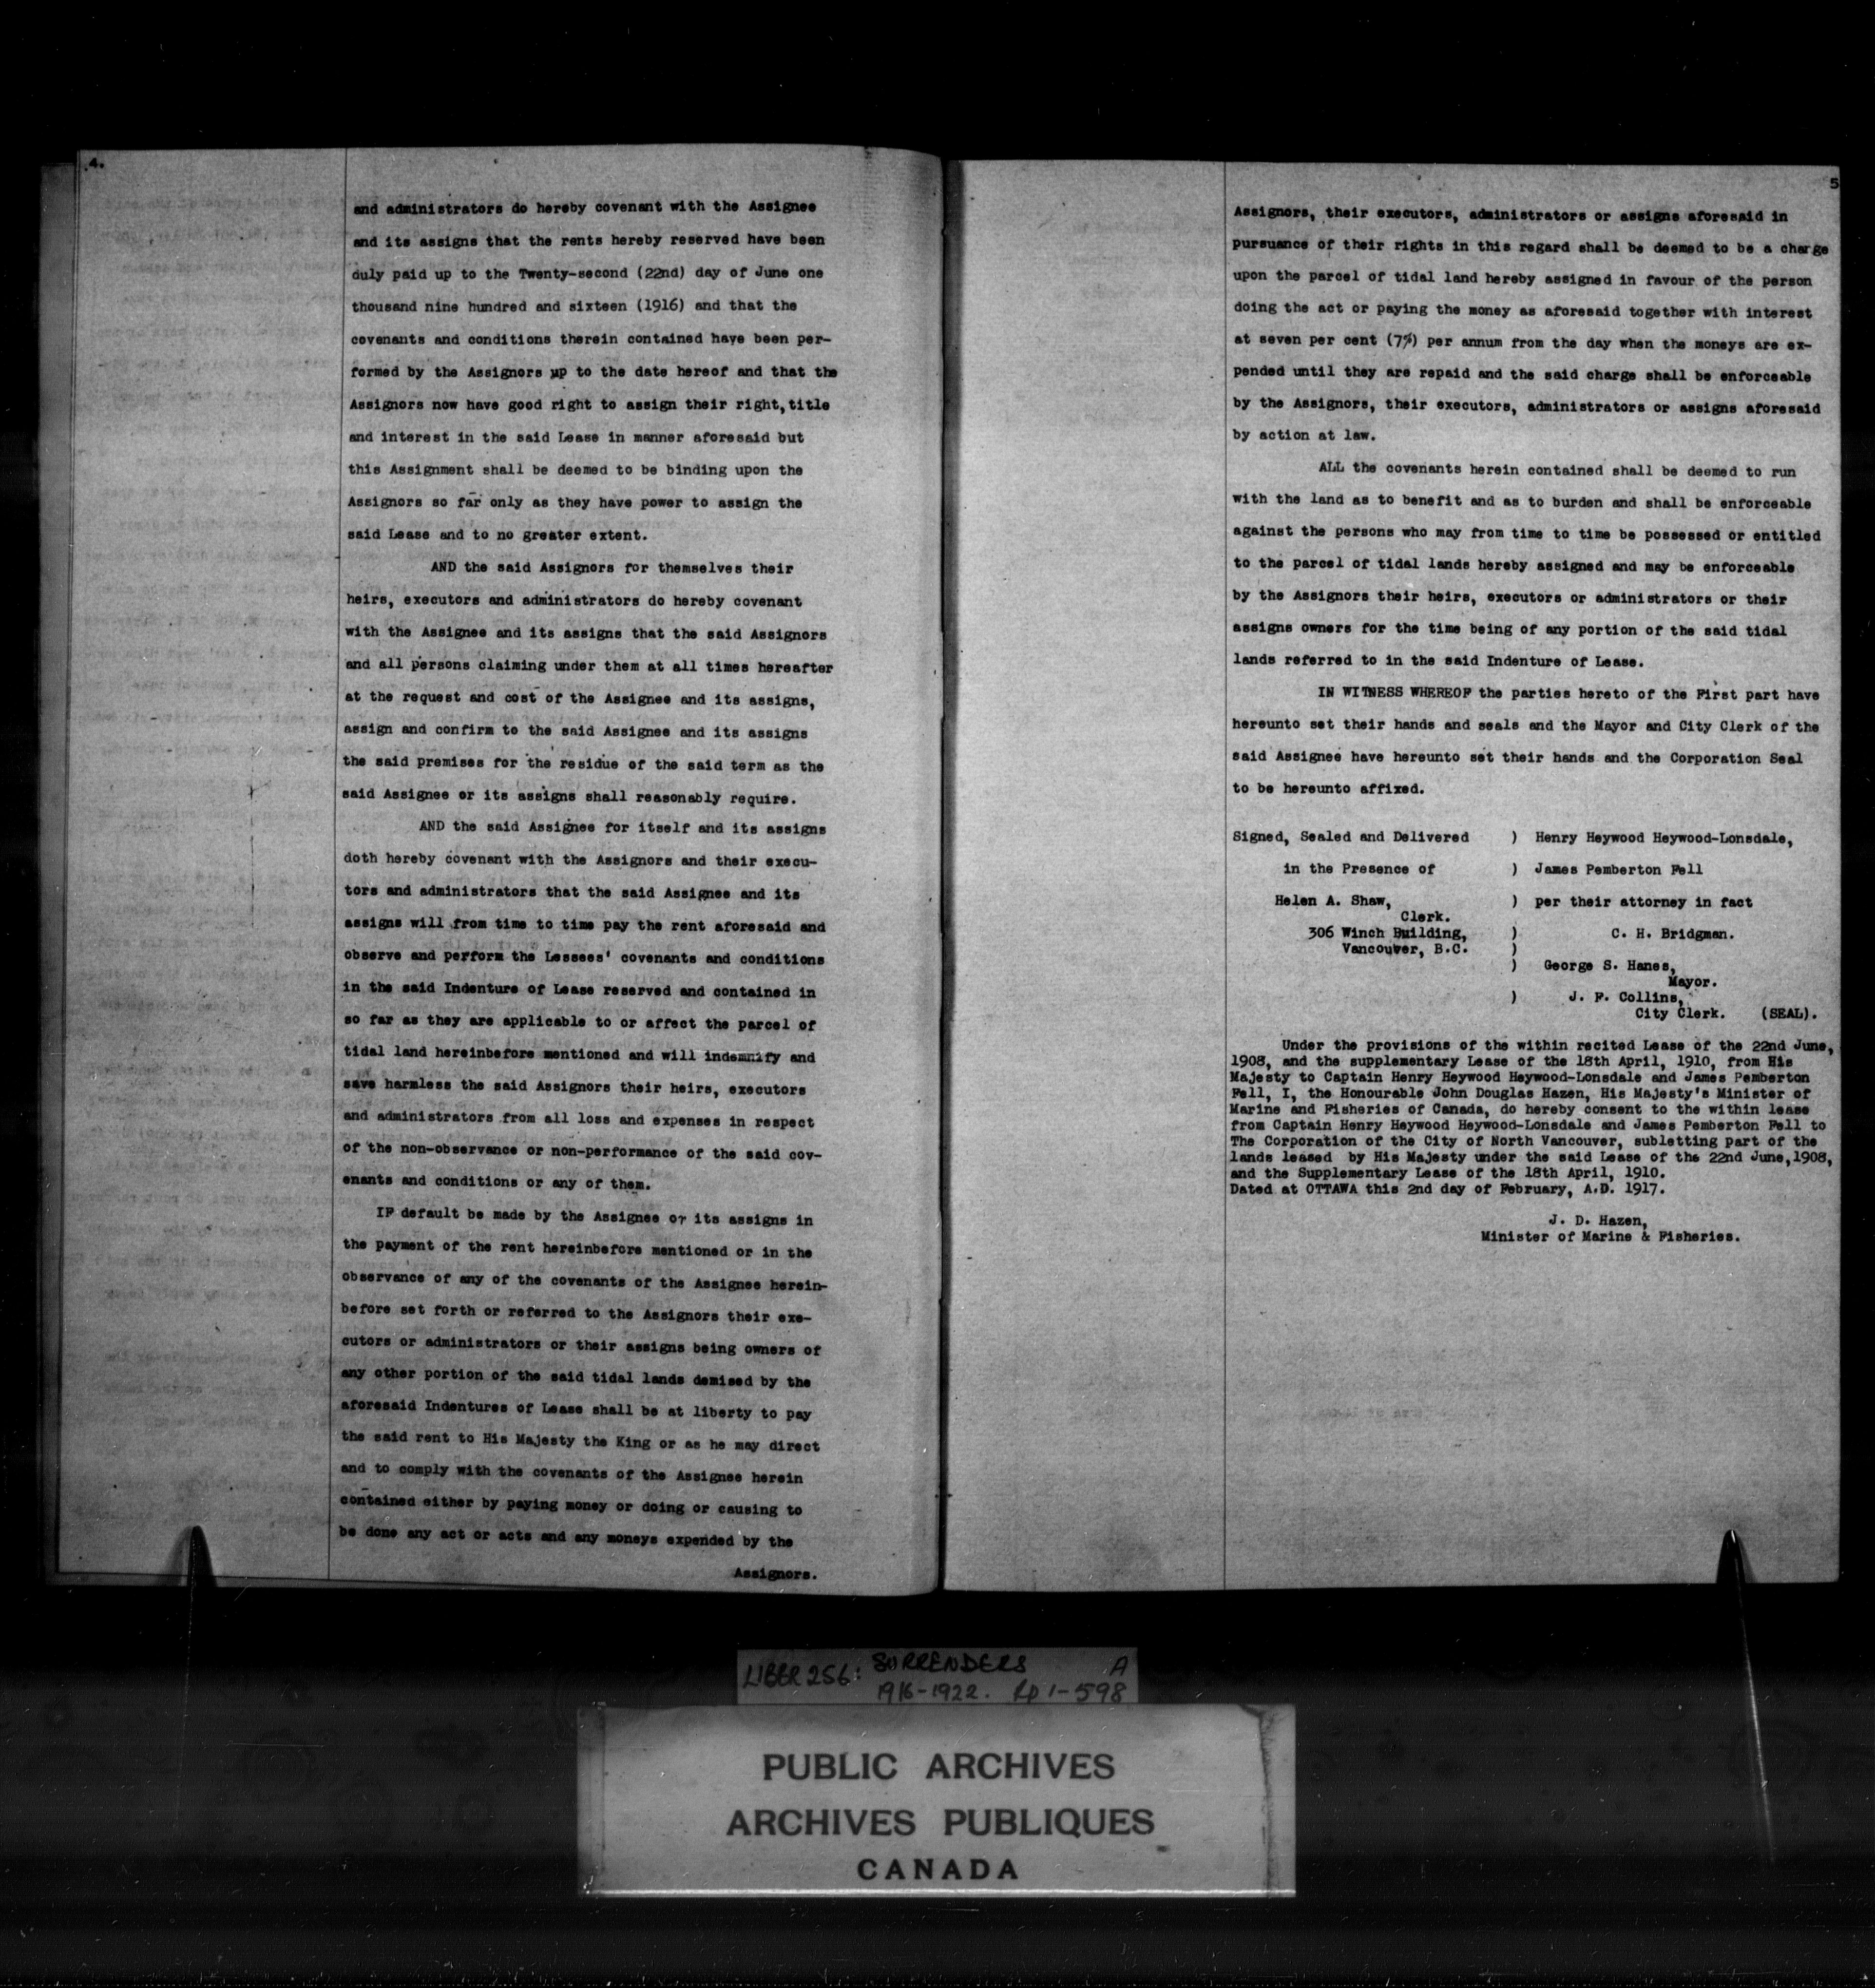 4.
and administrators do hereby covenant with the Assignee
and its assigns that the rents hereby reserved have been
duly paid up to the Twenty-second (22nd) day of June one
thousand nine hundred and sixteen (1916) and that the
covenants and conditions therein contained have been per-
formed by the Assignors up to the date hereof and that the
Assignors now have good right to assign their right, title
and interest in the said Lease in manner aforesaid but
this Assignment shall be deemed to be binding upon the
Assignors so far only as they have power to assign the
said Lease and to no greater extent.
AND the said Assignors for themselves their
heirs, executors and administrators do hereby covenant
with the Assignee and its assigns that the said Assignors
and all persons claiming under them at all times hereafter
at the request and cost of the Assignee and its assigns,
assign and confirm to the said Assignee and its assigns
the said premises for the residue of the said term as the
said Assignee or its assigns shall reasonably require.
AND the said Assignee for itself and its assigns
doth hereby covenant with the Assignors and their execu-
tors and administrators that the said Assignee and its
assigns will from time to time pay the rent aforesaid and
observe and perform the Lessees' covenants and conditions
in the said Indenture of Lease reserved and contained in
so far as they are applicable to or affect the parcel of
tidal land hereinbefore mentioned and will indemnify and
save harmless the said Assignors their heirs, executors
and administrators from all loss and expenses in respect
of the non-observance or non-performance of the said cov-
enants and conditions or any of them.
IF default be made by the Assignee or its assigns in
the payment of the rent hereinbefore mentioned or in the
observance of any of the covenants of the Assignee herein-
before set forth or referred to the Assignors their exe-
cutors or administrators or their assigns being owners of
any other portion of the said tidal lands demised by the
aforesaid Indentures of Lease shall be at liberty to pay
the said rent to His Majesty the King or as he may direct
and to comply with the covenants of the Assignee herein
contained either by paying money or doing or causing to
be done any act or acts and any moneys expended by the
Assignors.
5
Assignors, their executors, administrators or assigns aforesaid in
pursuance of their rights in this regard shall be deemed to be a charge
upon the parcel of tidal land hereby assigned in favour of the person
doing the act or paying the money as aforesaid together with interest
at seven per cent (7%) per annum from the day when the moneys are ex-
pended until they are repaid and the said charge shall be enforceable
by the Assignors, their executors, administrators or assigns aforesaid
by action at law.
ALL the covenants herein contained shall be deemed to run
with the land as to benefit and as to burden and shall be enforceable
against the persons who may from time to time be possessed or entitled
to the parcel of tidal lands hereby assigned and may be enforceable
by the Assignors their heirs, executors or administrators or their
assigns owners for the time being of any portion of the said tidal
lands referred to in the said Indenture of Lease.
IN WITNESS WHEREOF the parties hereto of the First part have
hereunto set their hands and seals and the Mayor and City Clerk of the
said Assignee have hereunto set their hands and the Corporation Seal
to be hereunto affixed.
Signed, Sealed and Delivered ) Henry Heywood Heywood-Lonsdale,
in the Presence of ) James Pemberton Fell
Helen A. Shaw, ) per their attorney in fact
Clerk.
306 Winch Building, ) C. H. Bridgman.
Vancouver, B.C. )
) George S. Hanes,
Mayor.
) J. F. Collins,
City Clerk. (SEAL).
Under the provisions of the within recited Lease of the 22nd June,
1908, and the supplementary Lease of the 18th April, 1910, from His
Majesty to Captain Henry Heywood Heywood-Lonsdale and James Pemberton
Fell, I, the Honourable John Douglas Hazen, His Majesty's Minister of
Marine and Fisheries of Canada, do hereby consent to the within lease
from Captain Henry Heywood Heywood-Lonsdale and James Pemberton Fell to
The Corporation of the City of North Vancouver, subletting part of the
lands leased by His Majesty under the said Lease of the 22nd June,1908,
and the Supplementary Lease of the 18th April, 1910.
Dated at OTTAWA this 2nd day of February, A.D. 1917.
J. D. Hazen,
Minister of Marine & Fisheries.
LIBER 256: SURRENDERS A
1916-1922. pp 1-598
PUBLIC ARCHIVES
ARCHIVES PUBLIQUES
CANADA